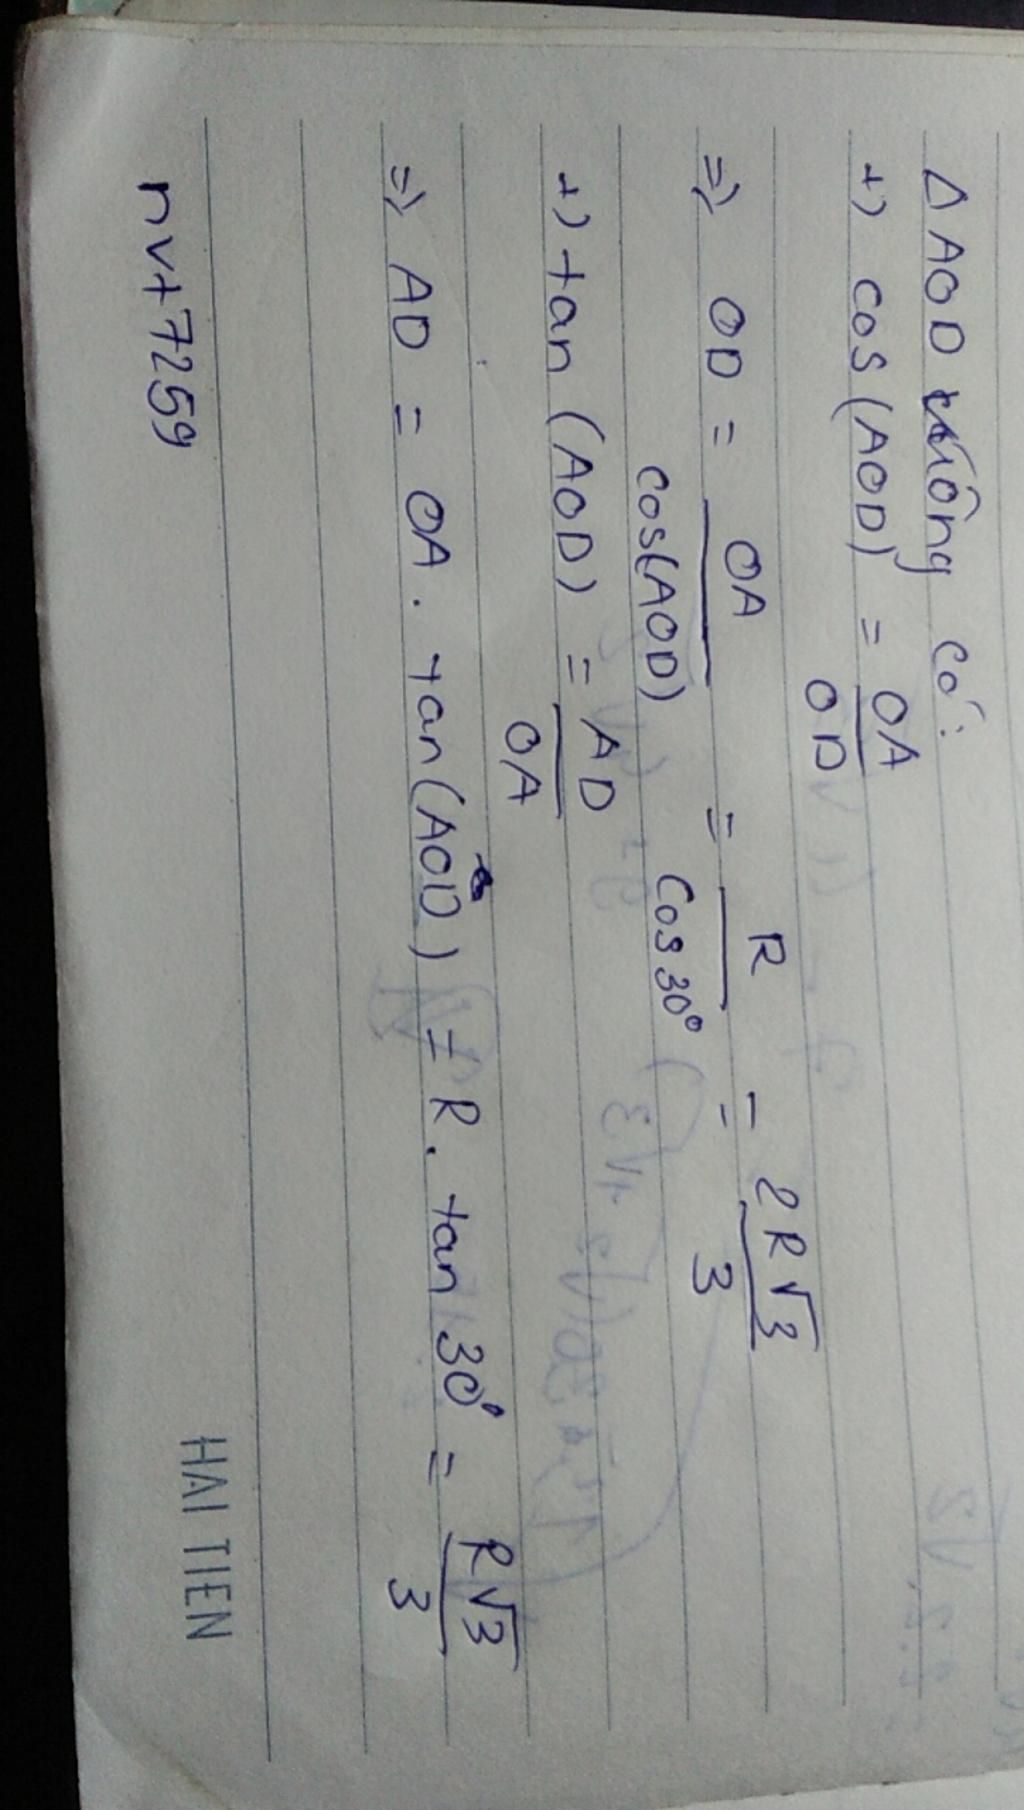 Δ AOD vuông có:
+) cos(AOD) = OA / OD
=> OD = OA / cos(AOD) = R / cos 30° = 2R√3 / 3
+) tan (AOD) = AD / OA
=> AD = OA . tan(AOD) = R. tan 30° = R√3 / 3
nvt7259
HAI TIEN